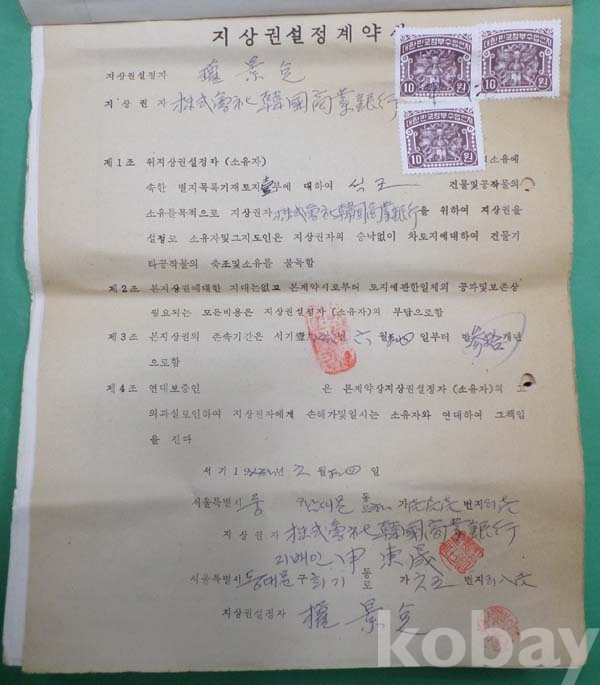 지상권설정계약서
대한민국정부수입인지
10 원
대한민국정부수입인지
10 원
대한민국정부수입인지
10 원
지상권설정자 權景
지상권자 株式會社 韓國商業銀行
제1조 위지상권설정자 (소유자) 소유에
속한 별지목록기재토지 부에 대하여 석조 건물및공작물의
소유를목적으로 지상권자 株式會社韓國商業銀行을 위하여 지상권을
설정코 소유자및그지도인은 지상권자의 승낙없이 차토지에대하여 건물기
타공작물의 축조및소유를 불득함
제2조 본지상권에대한 지대는없고 본계약시로부터 토지에관한일체의 공과및보존상
필요되는 모든비용은 지상권설정자 (소유자)의 부담으로함
제3조 본지상권의 존속기간은 서기 년 六월 일부터 만 개년
으로함
제4조 연대보증인 은 본계약상지상권설정자 (소유자)의 고
의과실로인하여 지상권자에게 손해가및일시는 소유자와 연대하여 그책임
을 진다
서기 1 년 六월 四일
서울특별시 중 동로 가 번지
지상권자 株式會社韓國商業銀行
지배인 申東晟
서울특별시 동대문구 회기 동로 가 六五 번지
지상권설정자 權景
kobay